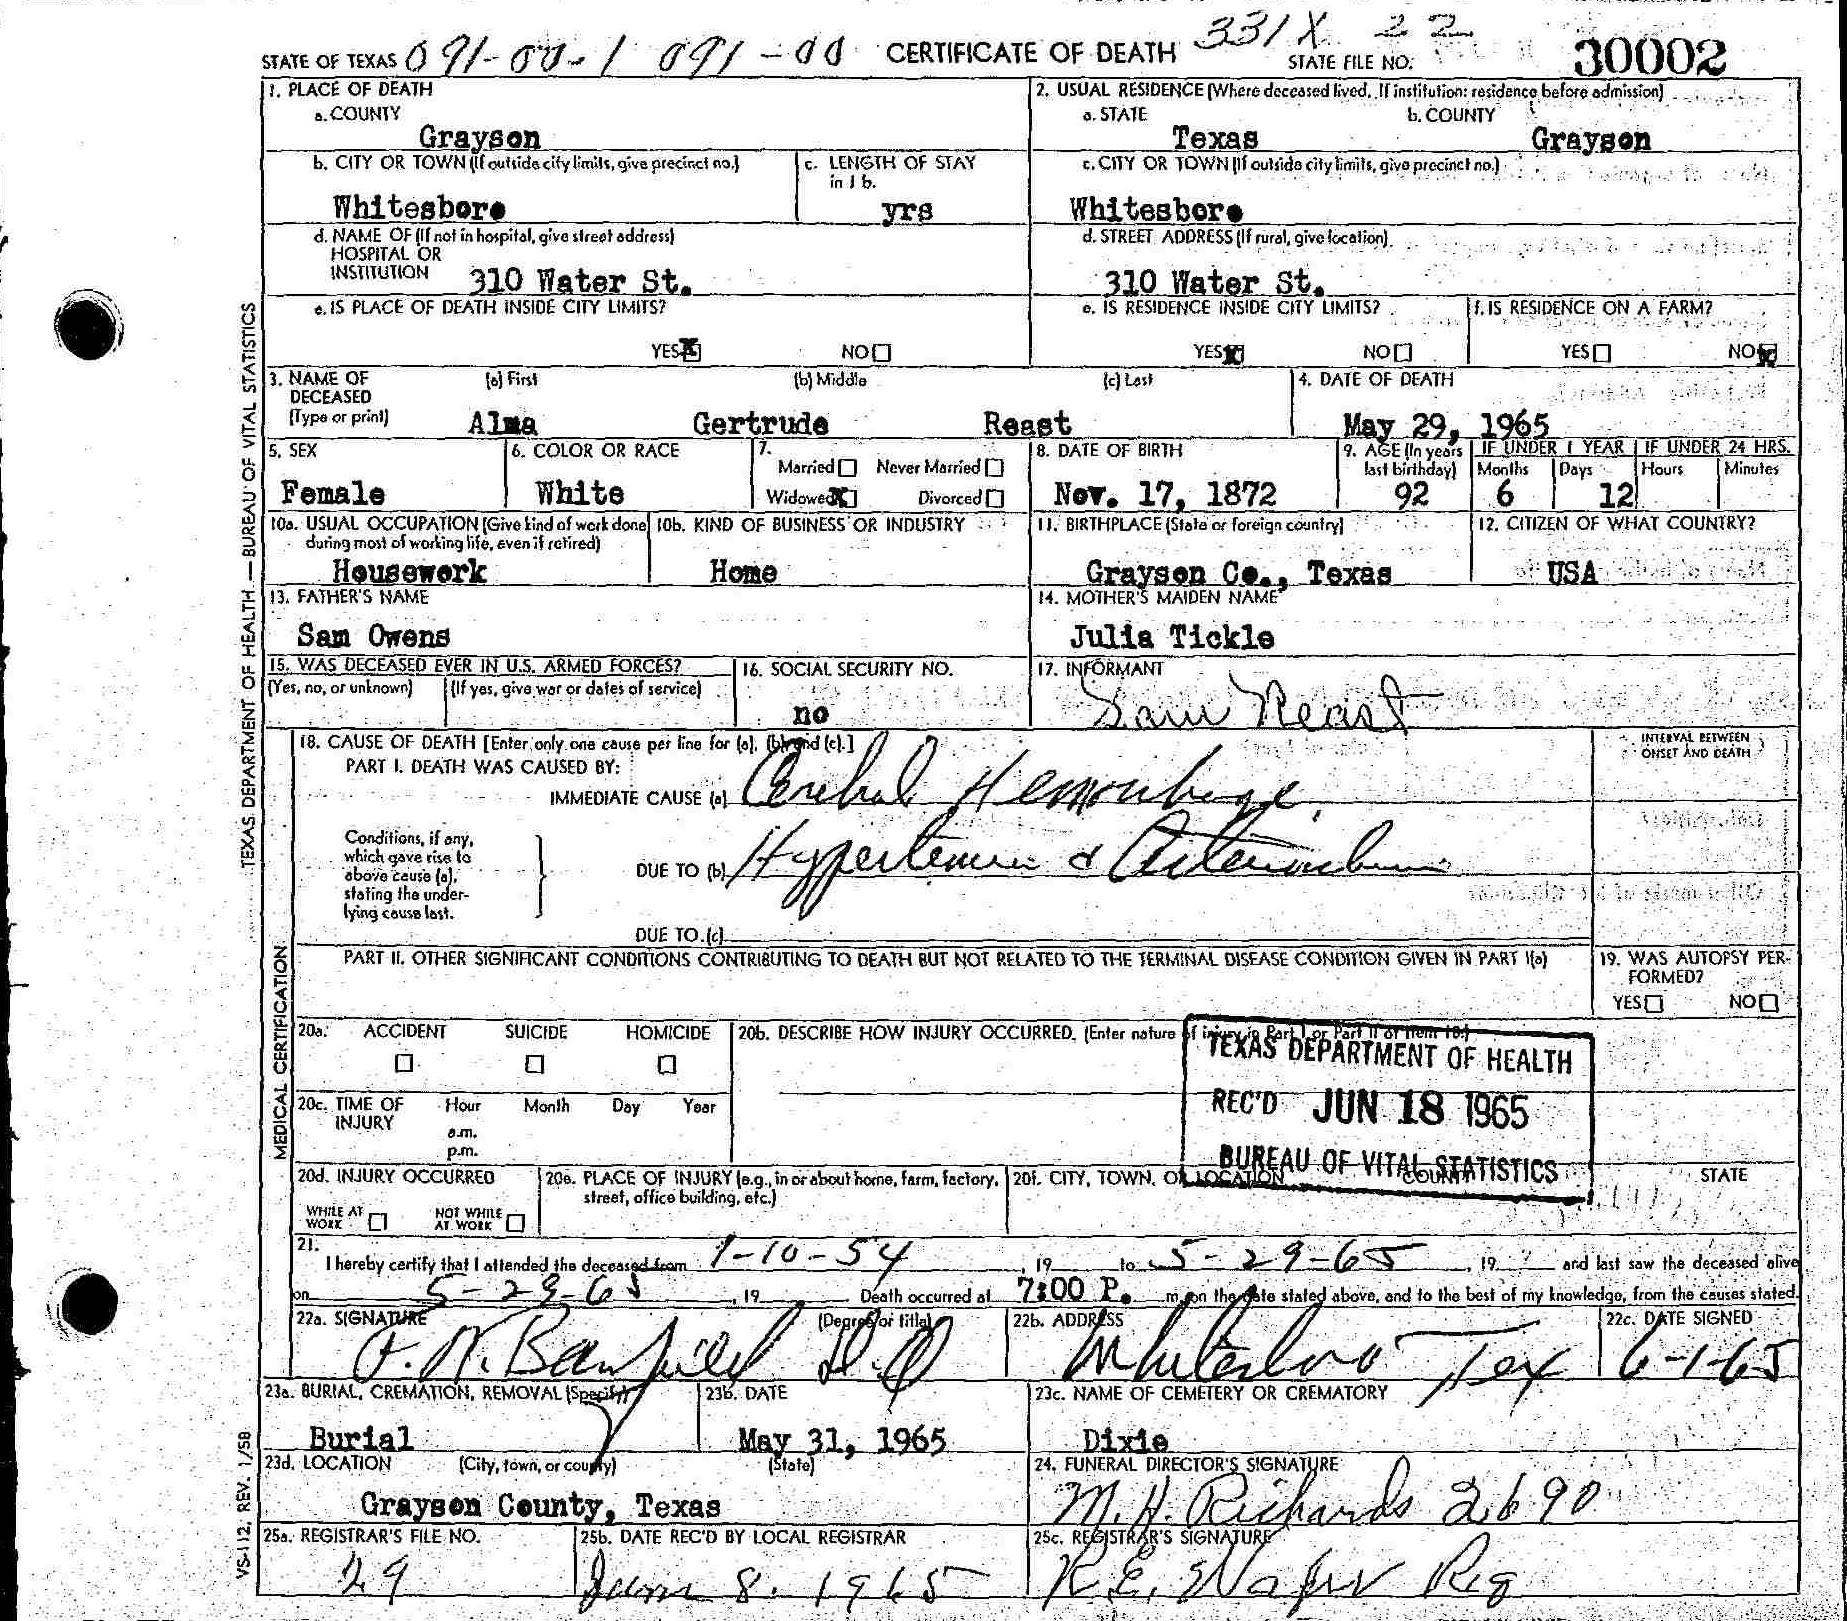 STATE OF TEXAS 091-00-1 091-00 CERTIFICATE OF DEATH 331X 22 STATE FILE NO. 30002
1. PLACE OF DEATH
a. COUNTY
Grayson
2. USUAL RESIDENCE (Where deceased lived. If institution: residence before admission)
a. STATE b. COUNTY
Texas Grayson
b. CITY OR TOWN (If outside city limits, give precinct no.)
Whitesboro
c. LENGTH OF STAY
in 1 b.
yrs
c. CITY OR TOWN (If outside city limits, give precinct no.)
Whitesboro
d. NAME OF (If not in hospital, give street address)
HOSPITAL OR
INSTITUTION 310 Water St.
d. STREET ADDRESS (If rural, give location)
310 Water St.
e. IS PLACE OF DEATH INSIDE CITY LIMITS?
YES X NO
e. IS RESIDENCE INSIDE CITY LIMITS?
YES X NO
f. IS RESIDENCE ON A FARM?
YES NO X
3. NAME OF
DECEASED
(Type or print)
(a) First (b) Middle (c) Last
Alma Gertrude Reast
4. DATE OF DEATH
May 29, 1965
5. SEX
Female
6. COLOR OR RACE
White
7.
Married Never Married
Widowed X Divorced
8. DATE OF BIRTH
Nov. 17, 1872
9. AGE (In years
last birthday)
92
IF UNDER 1 YEAR IF UNDER 24 HRS.
Months Days Hours Minutes
6 12
10a. USUAL OCCUPATION (Give kind of work done
during most of working life, even if retired)
Housework
10b. KIND OF BUSINESS OR INDUSTRY
Home
11. BIRTHPLACE (State or foreign country)
Grayson Co., Texas
12. CITIZEN OF WHAT COUNTRY?
USA
13. FATHER'S NAME
Sam Owens
14. MOTHER'S MAIDEN NAME
Julia Tickle
15. WAS DECEASED EVER IN U.S. ARMED FORCES?
(Yes, no, or unknown) (If yes, give war or dates of service)
16. SOCIAL SECURITY NO.
no
17. INFORMANT
Sam Reast
18. CAUSE OF DEATH [Enter only one cause per line for (a), (b) and (c).]
PART I. DEATH WAS CAUSED BY:
IMMEDIATE CAUSE (a) Cerebral Hemorrhage
INTERVAL BETWEEN
ONSET AND DEATH
Conditions, if any,
which gave rise to
above cause (a),
stating the under-
lying cause last.
DUE TO (b) Hypertension &
DUE TO (c)
PART II. OTHER SIGNIFICANT CONDITIONS CONTRIBUTING TO DEATH BUT NOT RELATED TO THE TERMINAL DISEASE CONDITION GIVEN IN PART I(a)
19. WAS AUTOPSY PER-
FORMED?
YES NO
20a. ACCIDENT SUICIDE HOMICIDE
20b. DESCRIBE HOW INJURY OCCURRED. (Enter nature of injury in Part I or Part II of item 18.)
TEXAS DEPARTMENT OF HEALTH
REC'D JUN 18 1965
BUREAU OF VITAL STATISTICS
20c. TIME OF
INJURY
Hour Month Day Year
a.m.
p.m.
20d. INJURY OCCURRED
WHILE AT
WORK
NOT WHILE
AT WORK
20e. PLACE OF INJURY (e.g., in or about home, farm, factory,
street, office building, etc.)
20f. CITY, TOWN, OR LOCATION COUNTY STATE
21.
I hereby certify that I attended the deceased from 1-10-54, 19 to 5-29-65, 19 and last saw the deceased alive
on 5-29-65, 19 Death occurred at 7:00 P. m., on the date stated above, and to the best of my knowledge, from the causes stated.
22a. SIGNATURE (Degree or title)
D.O
22b. ADDRESS
Whitesboro Tex
22c. DATE SIGNED
6-1-65
23a. BURIAL, CREMATION, REMOVAL (Specify)
Burial
23b. DATE
May 31, 1965
23c. NAME OF CEMETERY OR CREMATORY
Dixie
23d. LOCATION (City, town, or county) (State)
Grayson County, Texas
24. FUNERAL DIRECTOR'S SIGNATURE
M.H. Richards 2690
25a. REGISTRAR'S FILE NO.
29
25b. DATE REC'D BY LOCAL REGISTRAR
June 8. 1965
25c. REGISTRAR'S SIGNATURE
R.E. Reg
TEXAS DEPARTMENT OF HEALTH — BUREAU OF VITAL STATISTICS
MEDICAL CERTIFICATION
VS-112, REV. 1/58